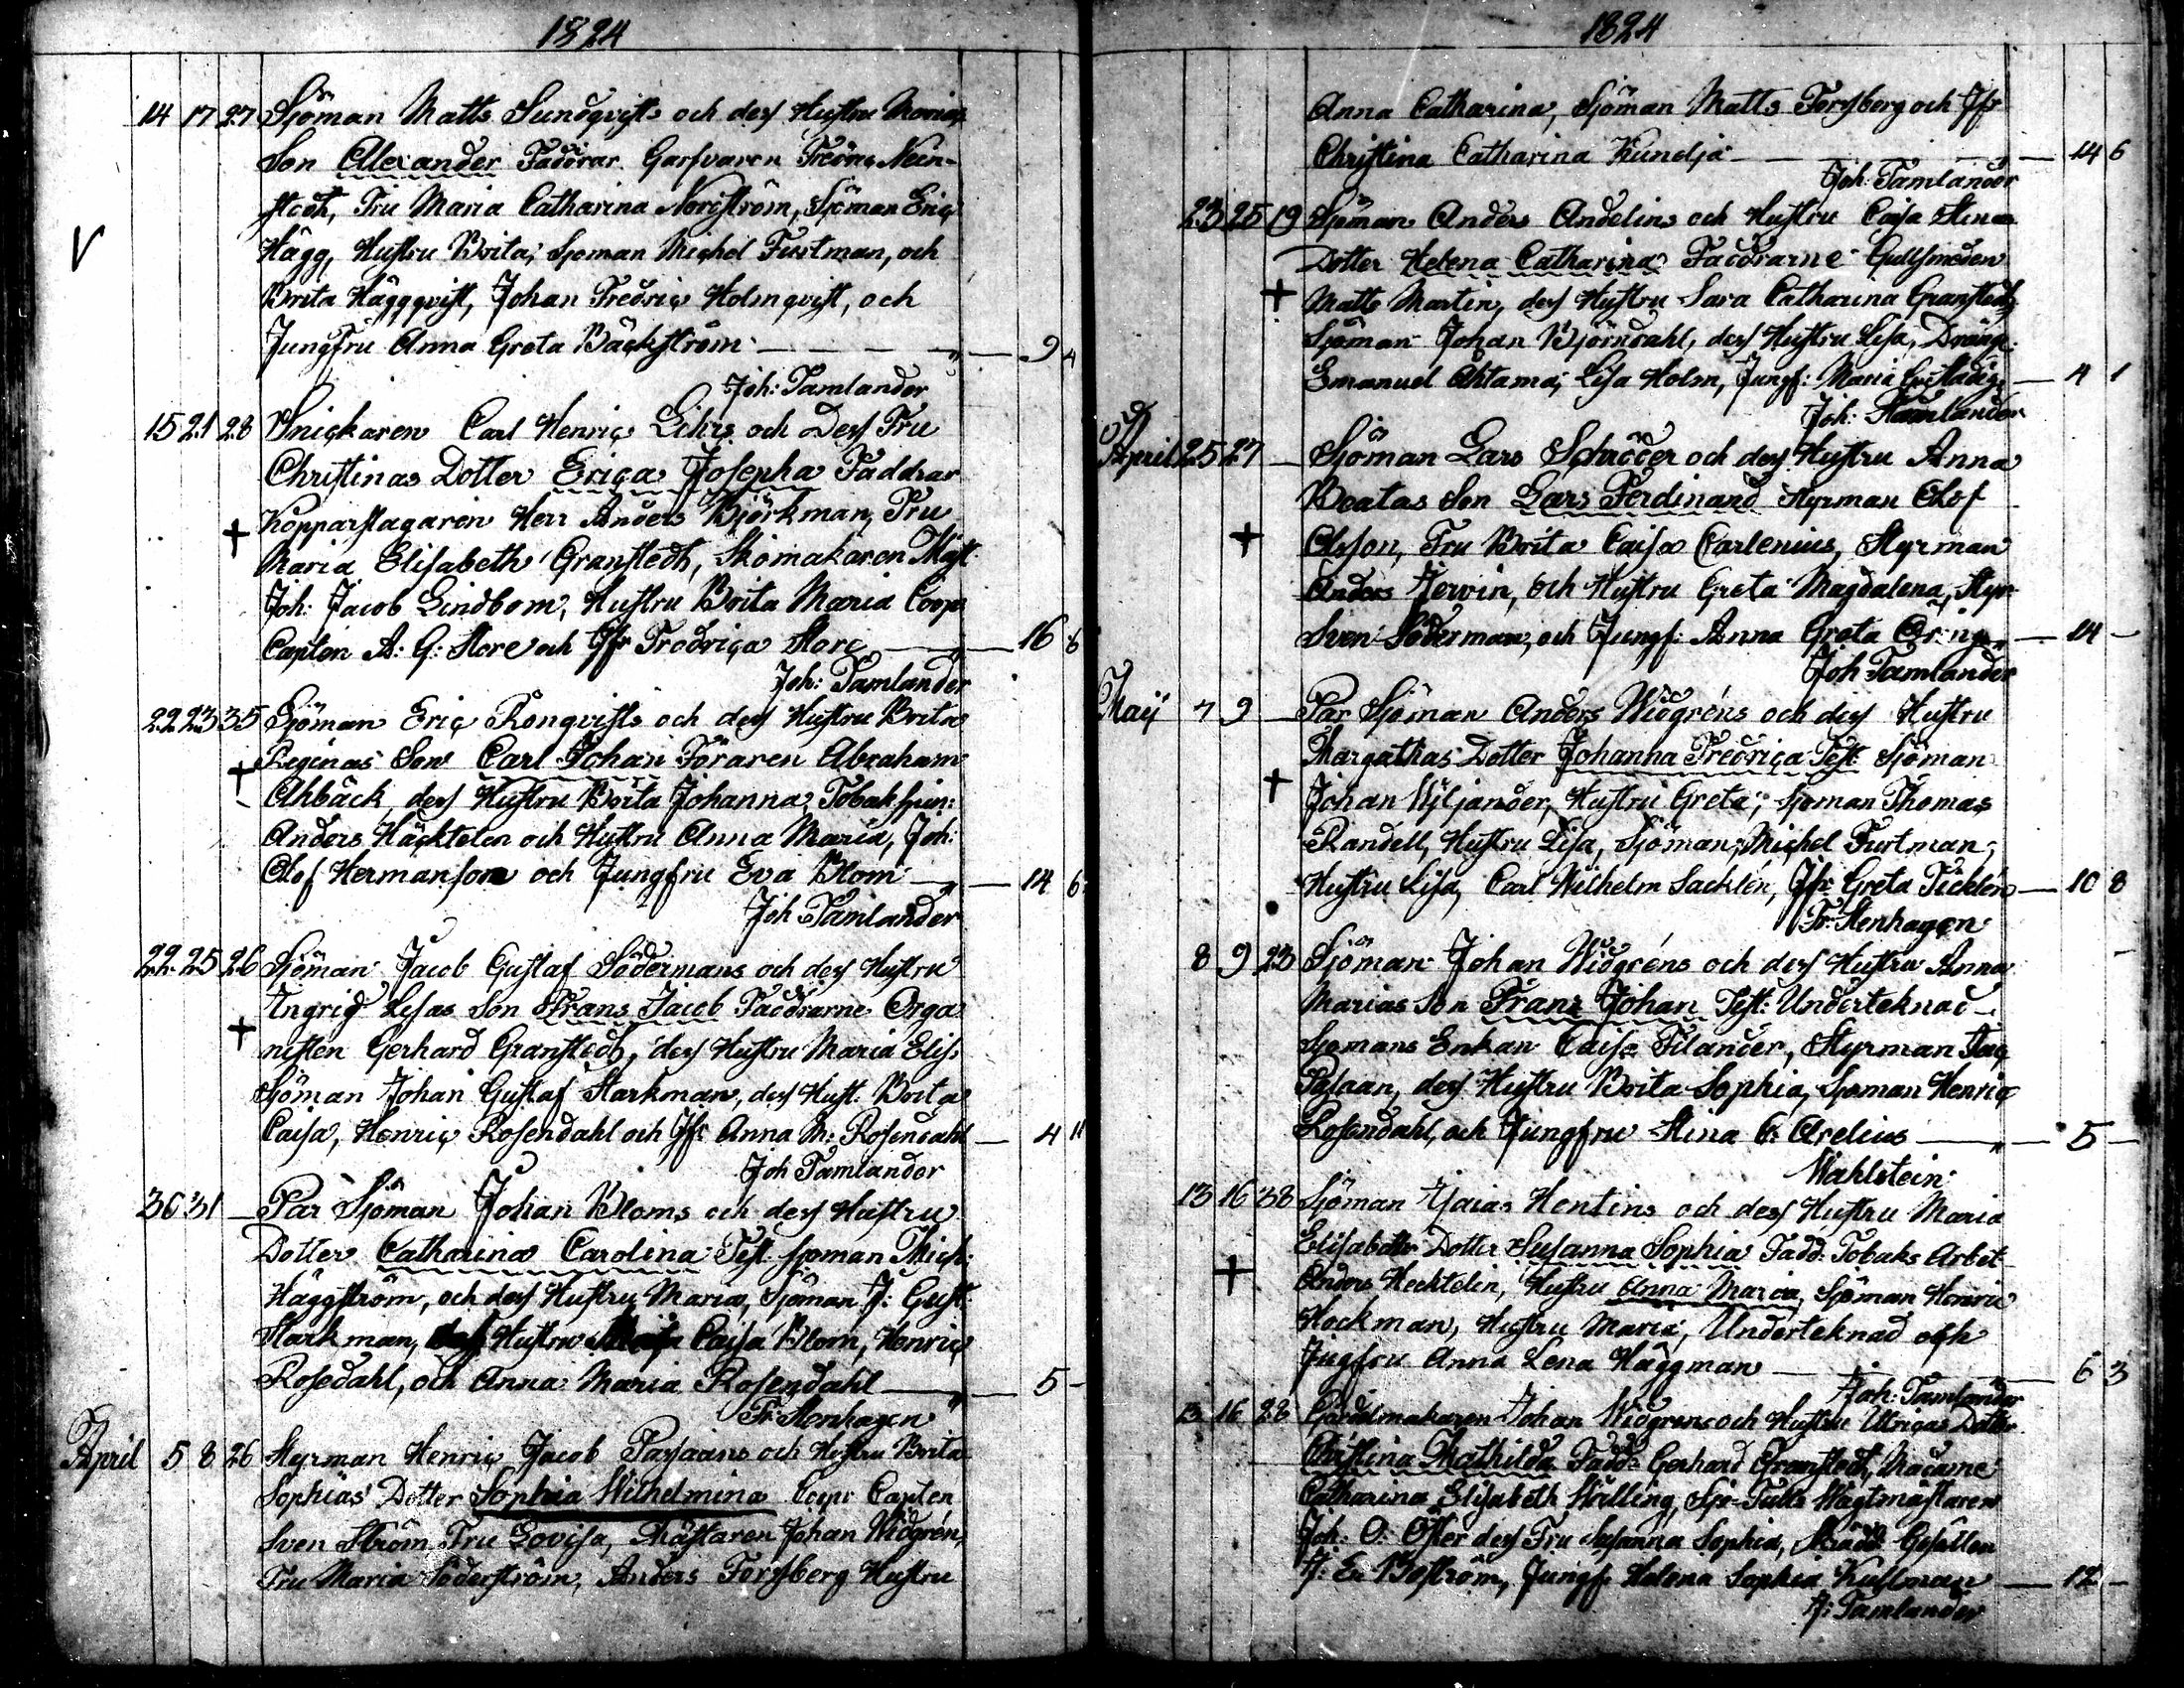 1824
14 17 27 Sjöman Matts Sundqvists och dess Hustru Marias
Son Alexander Faddrar Garfvaren Fredric Neen-
stedt, Fru Maria Catharina Nordström, Sjöman Eric
Hägg, Hustru Brita, Sjöman Michel Furtman, och
Brita Häggqvist, Johan Fredric Holmqvist, och
Jungfru Anna Greta Bäckström — 9 4
Joh: Tamlander
15 21 28 Snickaren Carl Henric Lihrs och Dess Fru
Christinas Dotter Erica Josepha Faddrar
Kopparslagaren Herr Anders Björkman, Fru
Maria Elisabeth Granstedt, Skomakaren Mäst.
Joh: Jacob Lindbom, Hustru Brita Maria Coop
Capten A: G: Store och Jfr Fredrica Store — 16 6
Joh: Tamlander
22 23 35 Sjöman Eric Ronqvists och dess Hustru Brita
Reginas Son Carl Johan Föraren Abraham
Ahbäck, dess Hustru Brita Johanna, Tobakspin:
Anders Häcktelen och Hustru Anna Maria, Joh:
Olof Hermanson och Jungfru Eva Blom — 14 6
Joh Tamlander
22 25 26 Sjöman Jacob Gustaf Södermans och dess Hustru
Ingrid Lesas Son Frans Jacob Faddrarne Orga
nisten Gerhard Granstedt, dess Hustru Maria Elis:
Sjöman Johan Gustaf Starkman, dess Hust: Brita
Caisa, Henric Rosendahl och Jfr Anna M: Rosendahl — 4 11
Joh Tamlander
30 31 — Par Sjöman Johan Bloms och dess Hustru
Dotter Catharina Carolina Test. Sjöman Mich:
Häggström, och dess Hustru Maria, Sjöman J: Gust:
Starkman, Hustru Caisa Blom, Henric
Rosedahl, och Anna Maria Rosendahl — 5 -
Fr: Stenhagen
April 5 8 26 Styrman Henric Jacob Passaans och Hustru Brita
Sophias Dotter Sophia Wilhelmina Coopv Capten
Sven Ström Fru Lovisa, Mästaren Johan Widgrén,
Fru Maria Söderström, Anders Forssberg Hustru
1824
Anna Catharina, Sjöman Matts Forssberg och Jfr
Christina Catharina Kundljä — 14 6
Joh: Tamlander
23 25 19 Sjöman Anders Andelins och Hustru Caisa Stinas
Dotter Helena Catharina Faddrarne Gullsmeden
Matts Martin, dess Hustru Sara Catharina Granstedt,
Sjöman Johan Björndahl, dess Hustru Lisa, Dräng.
Emanuel Ahtama, Lisa Holm, Jungf: Maria — 4 1
Joh: Tamlander
April 25 27 — Sjöman Lars Schröder och dess Hustru Anna
Beatas Son Lars Ferdinand Styrman Olof
Olsson, Fru Brita Caisa Carlenius, Styrman
Anders Jervin, och Hustru Greta Magdalena, Styr
Sven Söderman, och Jungf: Anna Greta — 14 -
Joh Tamlander
Maij 7 9 — Par Sjöman Anders Widgréns och dess Hustru
Margathas Dotter Johanna Fredrica Test. Sjöman
Johan Wiljander, Hustru Greta, Sjöman Thomas
Randell, Hustru Lisa, Sjöman Michel Furtman,
Hustru Lisa, Carl Wilhelm Sacklén, Jfr Greta Ticklén — 10 8
Fr: Stenhagen
8 9 23 Sjöman Johan Widgréns och dess Hustru Anna
Marias Son Franz Johan Test: Underteknad
Sjömans Enkan Caisa Filander, Styrman Jac
Passaan, dess Hustru Brita Sophia, Sjöman Henric
Rosendahl, och Jungfru Stina C: Arelius — 5 —
Wahlstein
13 16 38 Sjöman Esaias Hentins och dess Hustru Maria
Elisabeths Dotter Susanna Sophia Fadd: Tobaks Arbet
Anders Hecktelin, Hustru Anna Maria, Sjöman Henric
Hockman, Hustru Maria, Underteknad och
Jugfru Anna Lena Häggman — 6 3
Joh: Tamlander
13 16 28 Gördelmakaren Johan Widgrens och Hustru Ulricas Dotter
Christina Mathilda Fadd: Gerhard Granstedt, Madame
Catharina Elisabeth Wälling, Sjö-Tulls Wagtmästaren
Joh: O: Öster dess Fru Susanna Sophia, Skrädd: Gesällen
J: Er Boström, Jungf: Helena Sophia Kullman — 12 -
J: Tamlander